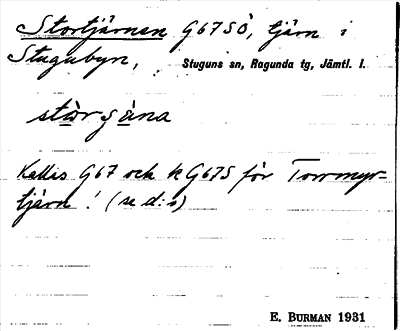 Stortjärnen G67SÖ, tjärn i
Stugubyn, Stuguns sn, Ragunda tg, Jämtl. l.
Kallas G67 och k G67S för Tormyr-
tjärn! (se d:o)
E. BURMAN 1931